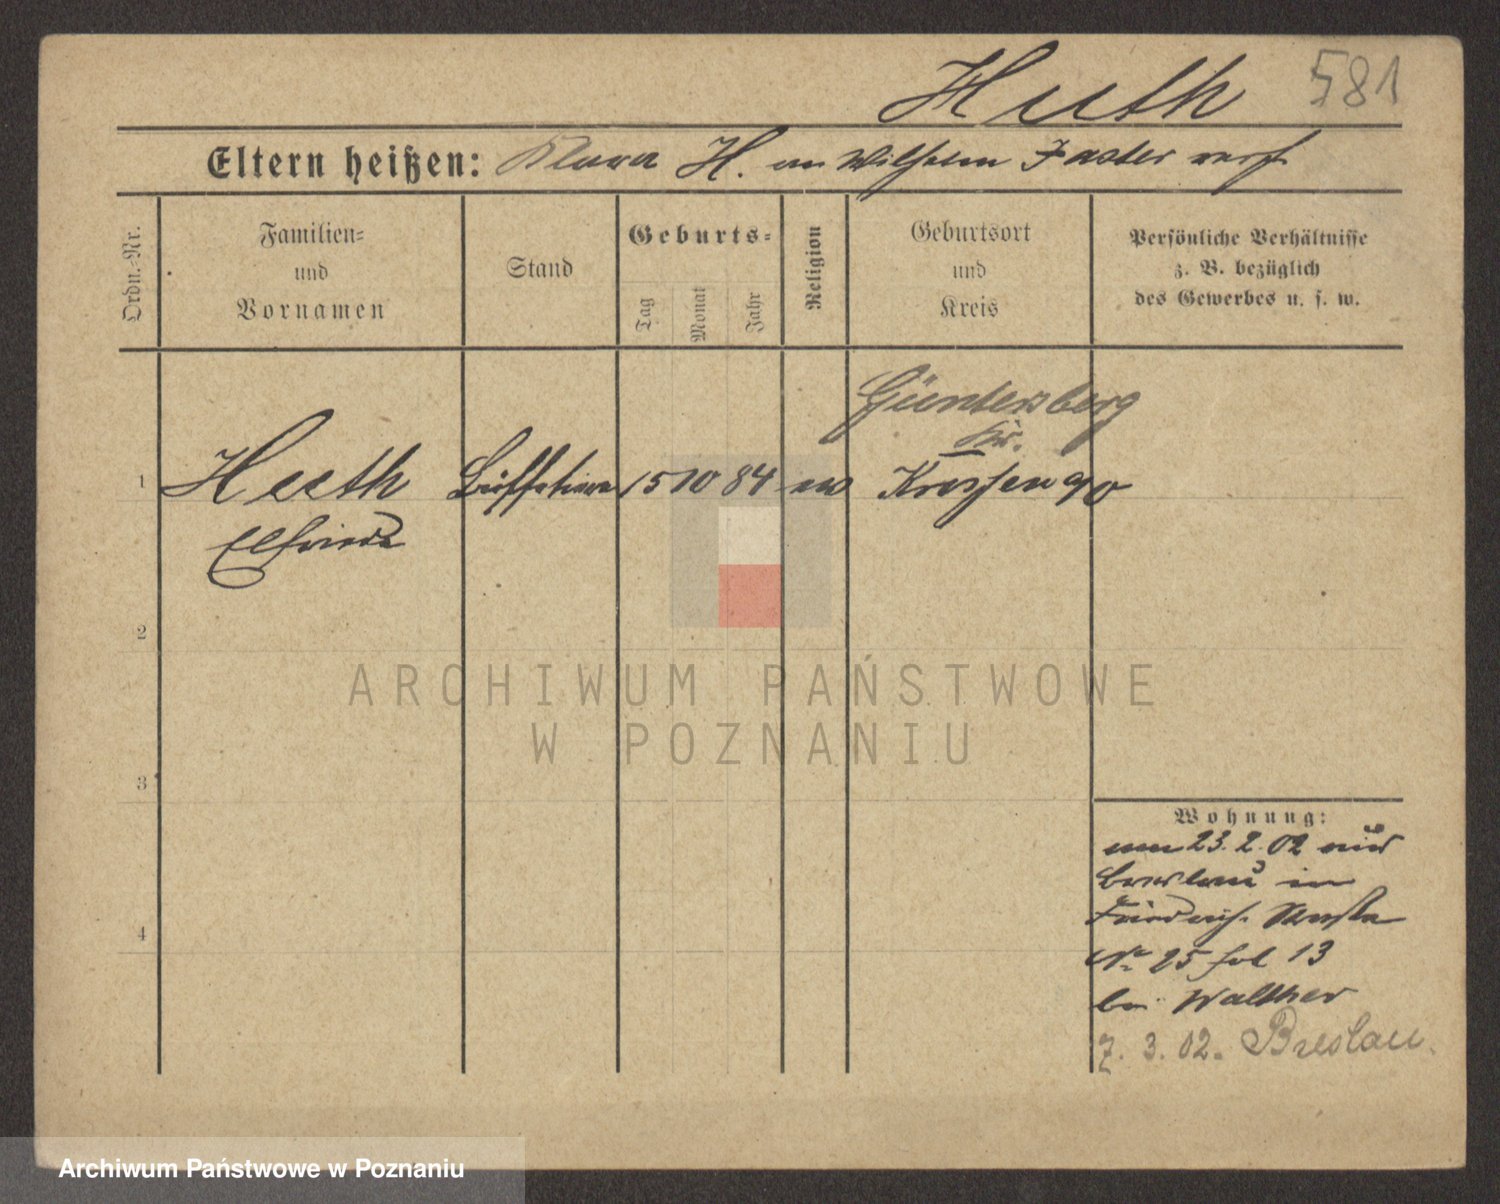 Huth 581
Eltern heißen: Klara H. an Wilhelm Faster verh
Ordn.-Nr.
Familien-
und
Vornamen
Stand
Geburts-
Tag
Monat
Jahr
Religion
Geburtsort
und
Kreis
Persönliche Verhältnisse
z. B. bezüglich
des Gewerbes u. s. w.
Güntersberg
Kr.
1 Huth 15 10 84 Krossen a/O
Elfriede
2
ARCHIWUM PAŃSTWOWE
W POZNANIU
3
Wohnung:
23.2.02 aus
Breslau in
Friedrich Straße
No 25 hol 13
bei Walther
7. 3. 02. Breslau.
4
Archiwum Państwowe w Poznaniu